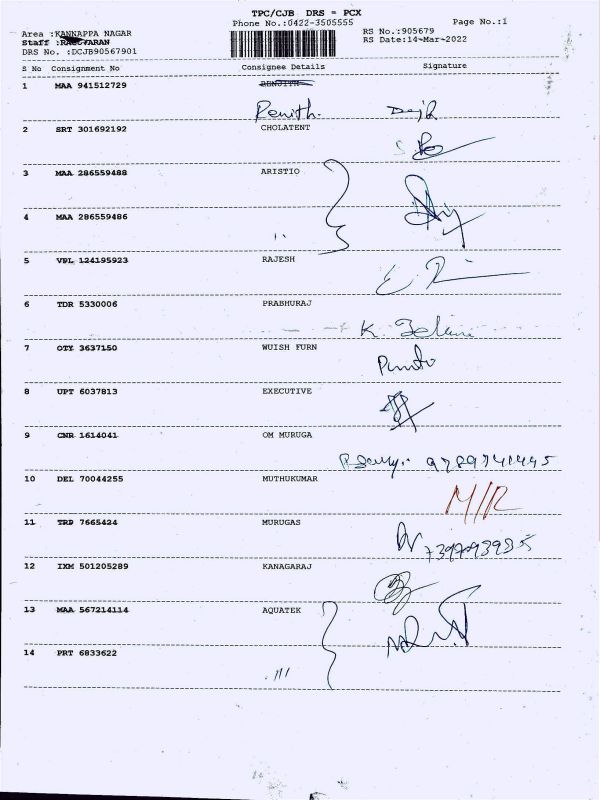 TPC/CJB DRS = PCX
Phone No.:0422-3505555 Page No.:1
Area :KANNAPPA NAGAR RS No.:905679
Staff : RS Date:14-Mar-2022
DRS No. :DCJB90567901
S No Consignment No Consignee Details Signature
1 MAA 941512729
Renith.
2 SRT 301692192 CHOLATENT
3 MAA 286559488 ARISTIO
4 MAA 286559486 ''
5 VPL 124195923 RAJESH
6 TDR 5330006 PRABHURAJ
K.
7 OTY 3637150 WUISH FURN
8 UPT 6037813 EXECUTIVE
9 CNR 1614041 OM MURUGA
9789741445
10 DEL 70044255 MUTHUKUMAR
M/R
11 TRP 7665424 MURUGAS
12 IXM 501205289 KANAGARAJ
13 MAA 567214114 AQUATEK
14 PRT 6833622